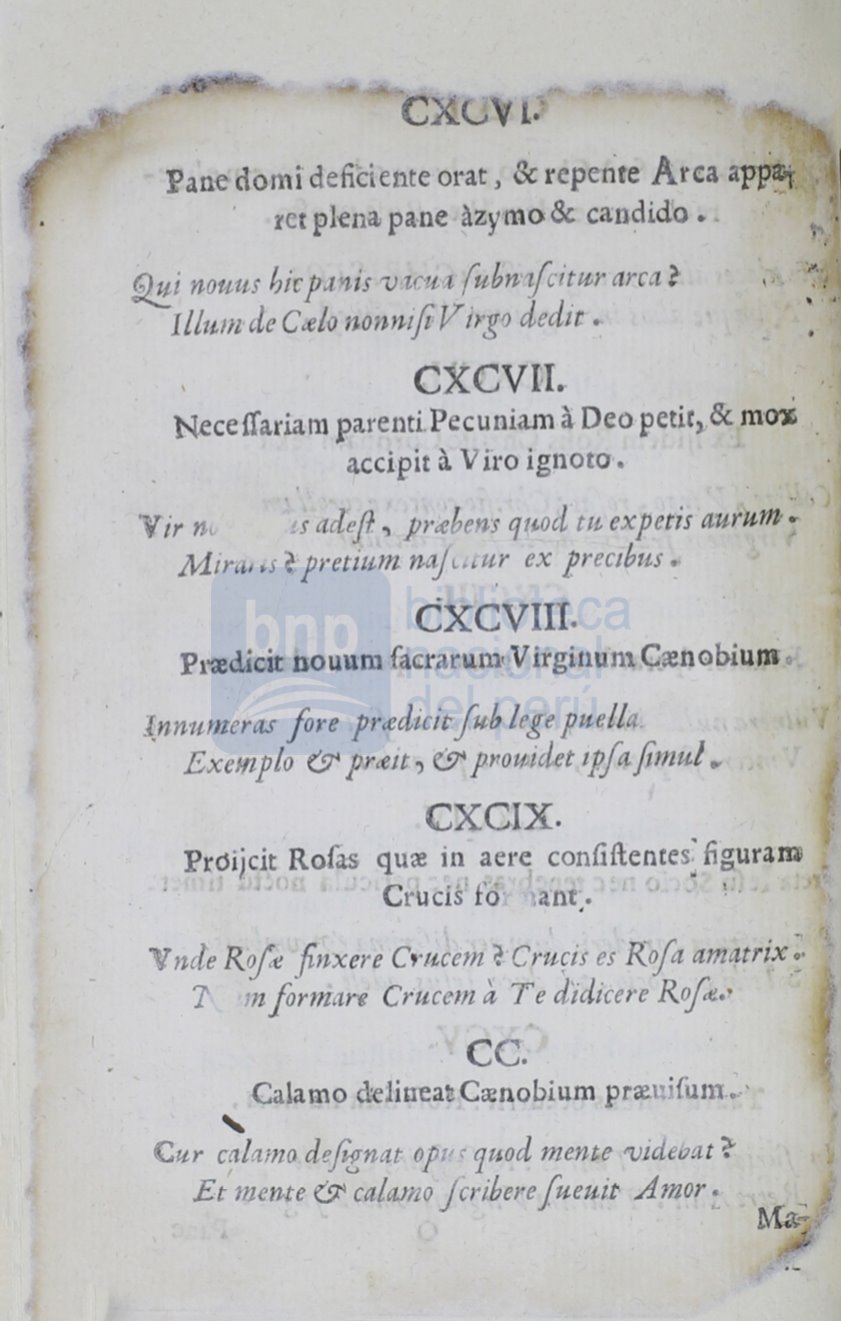 CXCVI.
Pane domi deficiente orat, & repente Arca appa-
ret plena pane àzymo & candido.
Qui nouus hic panis vacua ſubnaſcitur arca?
Illum de Cælo nonniſi Virgo dedit.
CXCVII.
Neceſſariam parenti Pecuniam à Deo petit, & mox
accipit à Viro ignoto.
Vir adeſt, præbens quod tu expetis aurum.
Miraris? pretium naſcitur ex precibus.
CXCVIII.
Prædicit nouum ſacrarum Virginum Cænobium.
Innumeras fore prædicit ſub lege puella
Exemplo & præit, & prouidet ipſa ſimul.
CXCIX.
Proijcit Roſas quæ in aere conſiſtentes figuram
Crucis formant.
Vnde Roſæ finxere Crucem? Crucis es Roſa amatrix.
formare Crucem à Te didicere Roſæ.
CC.
Calamo delineat Cænobium præuiſum.
Cur calamo deſignat opus quod mente videbat?
Et mente & calamo ſcribere ſueuit Amor.
Ma-
bnp biblioteca
nacional
del perú